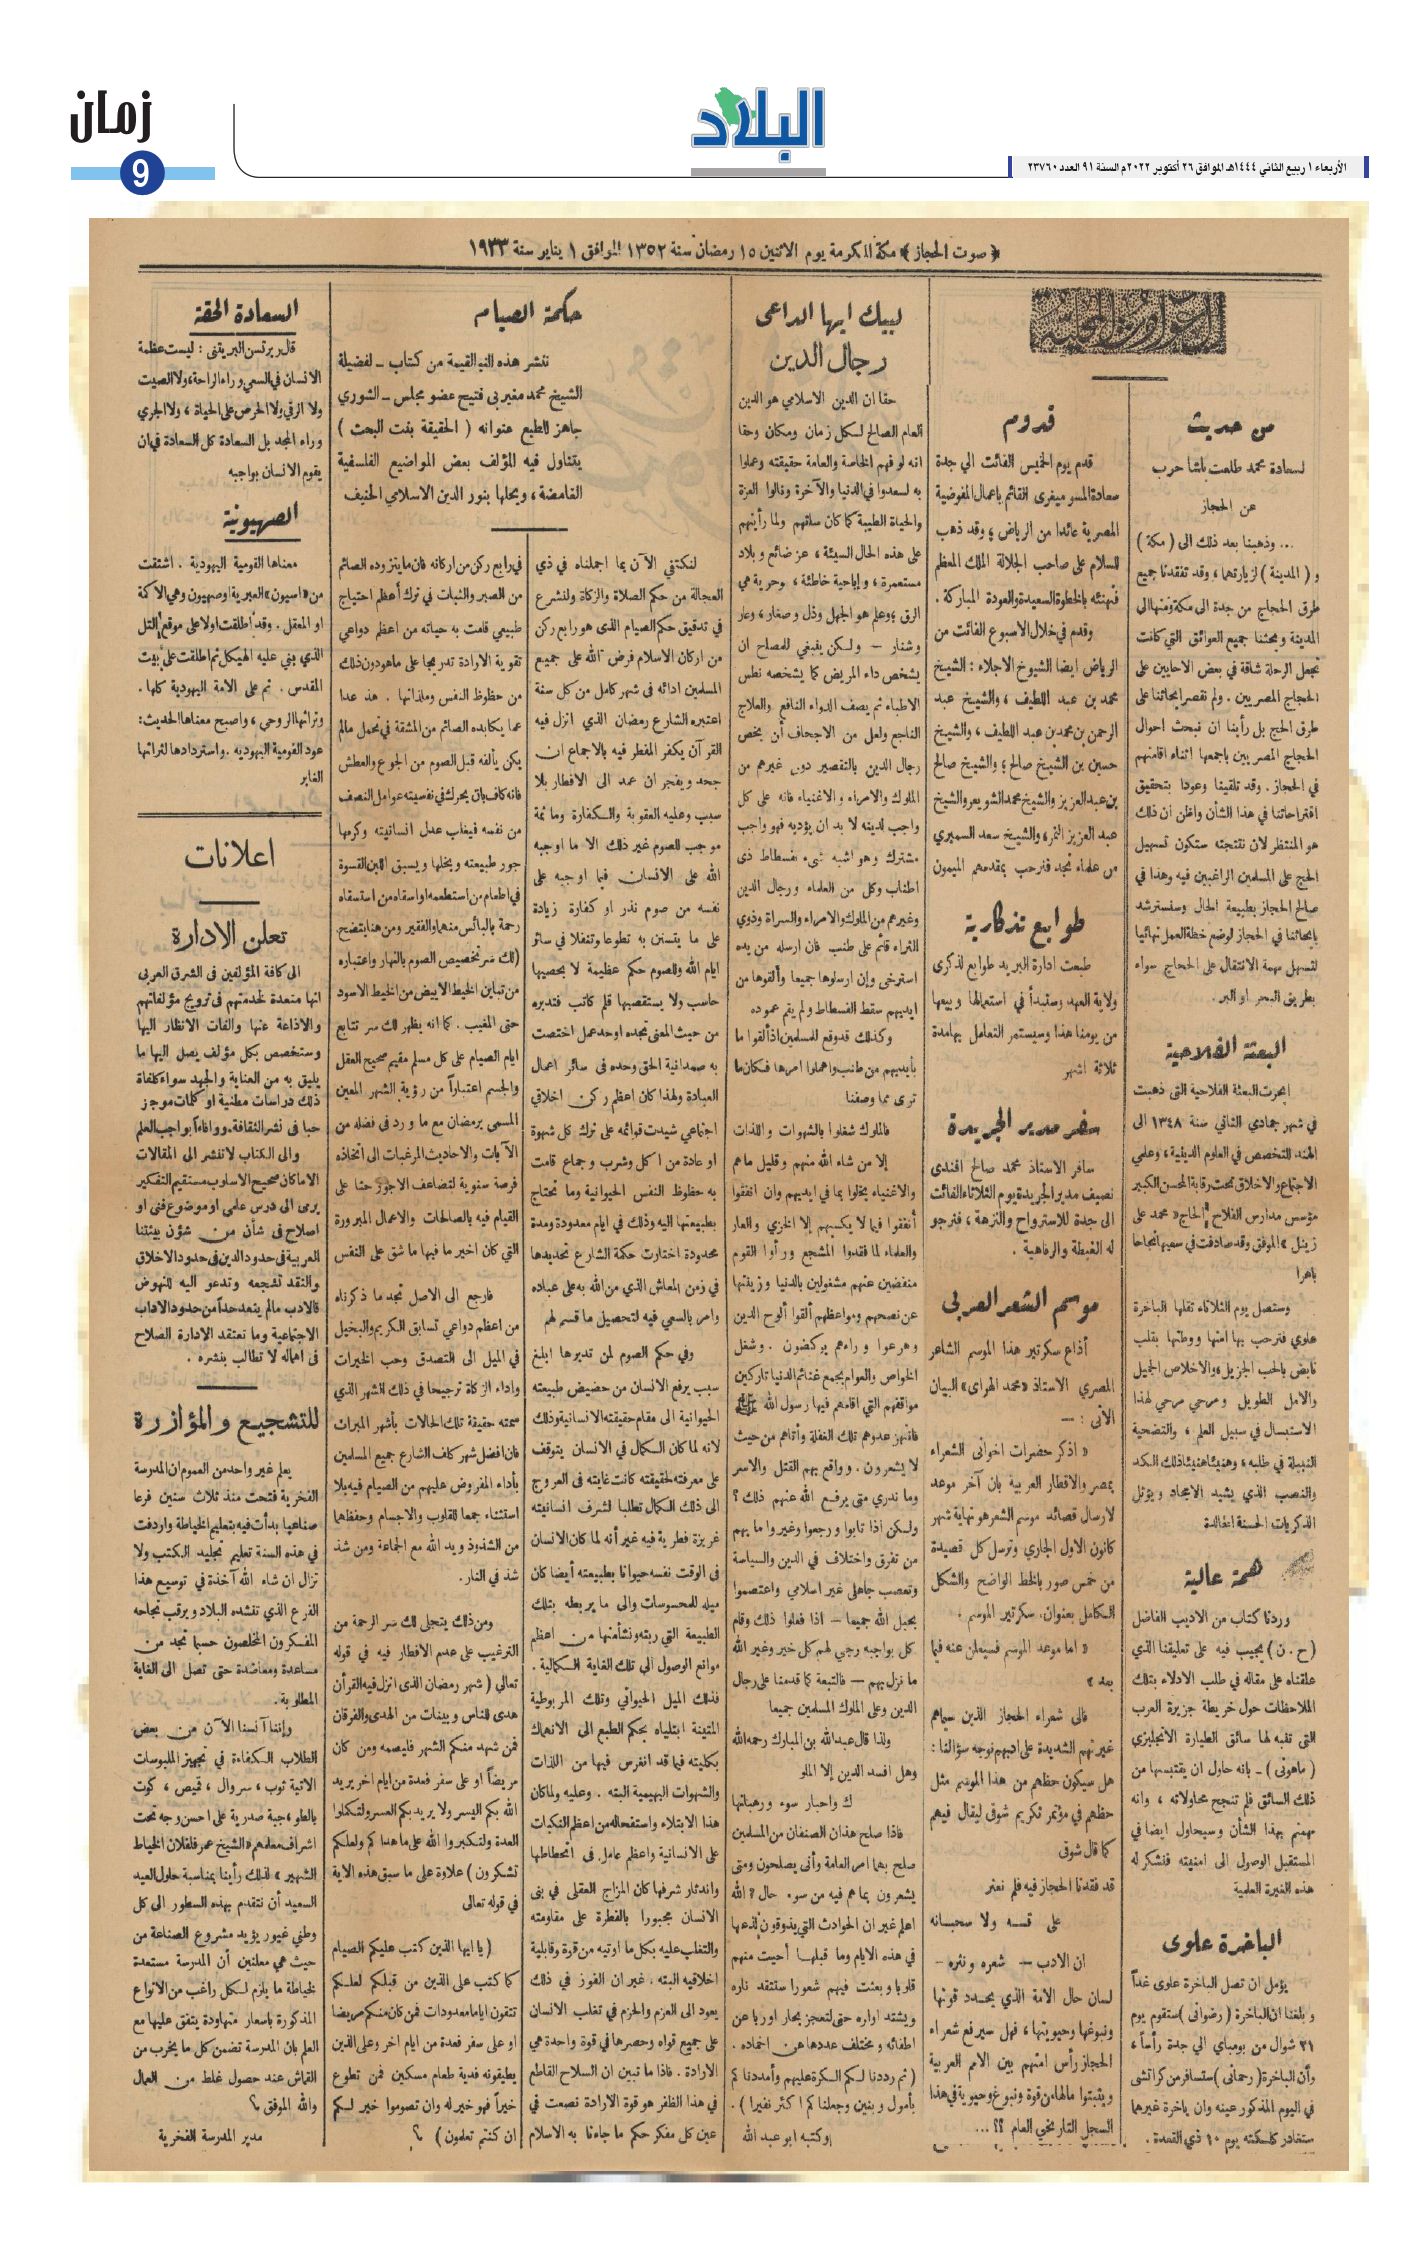 زمان
9
البلاد
الأربعاء ١ ربيع الثاني ١٤٤٤هـ الموافق ٢٦ أكتوبر ٢٠٢٢م السنة ٩١ العدد ٢٣٧٦٠
﴿ صوت الحجاز ﴾ مكة المكرمة يوم الاثنين ١٥ رمضان سنة ١٣٥٢ الموافق ١ يناير سنة ١٩٣٣
من حديث
لسعادة محمد طلعت باشا حرب
عن الحجاز
... وذهبنا بعد ذلك الى ( مكة )
و ( المدينة ) لزيارتهما ، وقد تفقدنا جميع
طرق الحجاج من جدة الى مكة ومنها الى
المدينة وبحثنا جميع العوائق التي كانت
تجعل الرحلة شاقة في بعض الاحايين على
الحجاج المصريين . ولم نقصر ابحاثنا على
طرق الحج بل رأينا ان نبحث احوال
الحجاج المصريين باجمعها اثناء اقامتهم
في الحجاز . وقد تلقينا وعودا بتحقيق
اقتراحاتنا في هذا الشأن واظن ان ذلك
هو المنتظر لان نتيجته ستكون تسهيل
الحج على المسلمين الراغبين فيه وهذا في
صالح الحجاز بطبيعة الحال وسنسترشد
بابحاثنا في الحجاز لوضع خطة العمل نهائيا
لتسهيل مهمة الانتقال على الحجاج سواء
بطريق البحر او البر .
البعثة الفلاحية
ابحرت البعثة الفلاحية التى ذهبت
في شهر جمادي الثاني سنة ١٣٤٨ الى
الهند للتخصص في العلوم الدينية ، وعلمي
الاجتماع والاخلاق تحت رقابة المحسن الكبير
مؤسس مدارس الفلاح « الحاج » محمد على
زينل » الموفق وقد صادفت في سعيها نجاحا
باهرا
وستصل يوم الثلاثاء تقلها الباخرة
علوي فنرحب بها امتها ووطنها بقلب
نابض بالحب الجزيل والاخلاص الجميل
والامل الطويل ومرحي مرحي لهذا
الاستبسال في سبيل العلم ، والتضحية
النبيلة في طلبه ، وهنيئا هنيئا ذلك الكد
والنصب الذي يشيد الامجاد ويؤثل
الذكريات الحسنة الخالدة
همة عالية
وردنا كتاب من الاديب الفاضل
( ح . ن ) يجيب فيه على تعليقنا الذي
علقناه على مقاله في طلب الادلاء بتلك
الملاحظات حول خريطة جزيرة العرب
التى تنبه لها سائق الطيارة الانجليزي
( ماهوني ) ـ بانه حاول ان يقتبسها من
ذلك السائق فلم تنجح محاولاته ، وانه
مهتم بهذا الشأن وسيحاول ايضا في
المستقبل الوصول الى امنيته فنشكر له
هذه الغيرة العلمية
الباخرة علوى
يؤمل ان تصل الباخرة علوى غداً
وبلغنا ان الباخرة ( رضوانى ) ستقوم يوم
٢١ شوال من بومباي الى جدة رأساً ،
وأن الباخرة ( رحمانى ) ستسافر من كراتشى
في اليوم المذكور عينه وان باخرة غيرهما
ستغادر كلكته يوم ١٠ ذي القعدة .
قدوم
قدم يوم الخميس الفائت الي جدة
سعادة المسيو ميفرى القائم باعمال المفوضية
المصرية عائدا من الرياض ؛ وقد ذهب
للسلام على صاحب الجلالة الملك المعظم
فنهنئه بالخطوة السعيدة والعودة المباركة .
وقدم في خلال الاسبوع الفائت من
الرياض ايضا الشيوخ الاجلاء : الشيخ
محمد بن عبد اللطيف ، والشيخ عبد
الرحمن بن محمد بن عبد اللطيف ، والشيخ
حسين بن الشيخ صالح ؛ والشيخ صالح
بن عبد العزيز والشيخ محمد الشويعر والشيخ
عبد العزيز النمر ، والشيخ سعد السميري
من علماء نجد فنرحب بمقدمهم الميمون
طوابع تذكارية
طبعت ادارة البريد طوابع لذكرى
ولاية العهد وستبدأ في استعمالها وبيعها
من يومنا هذا وسيستمر التعامل بها مدة
ثلاثة اشهر
سفر مدير الجريدة
سافر الاستاذ محمد صالح افندى
نصيف مدير الجريدة يوم الثلاثاء الفائت
الى جدة للاسترواح والنزهة ، فنرجو
له الغبطة والرفاهية .
موسم الشعر العربى
أذاع سكرتير هذا الموسم الشاعر
المصري الاستاذ « محمد الهراوى » البيان
الآتي : —
« اذكر حضرات اخوانى الشعراء
بمصر والاقطار العربية بان آخر موعد
لارسال قصائد موسم الشعر هو نهاية شهر
كانون الاول الجاري وترسل كل قصيدة
من خمس صور بالخط الواضح والشكل
الكامل بعنوان سكرتير الموسم .
« اما موعد الموسم فسيعلن عنه فيما
بعد »
فالى شعراء الحجاز الذين سيماهم
غيرتهم الشديدة على ادبهم نوجه سؤالنا :
هل سيكون حظهم من هذا الموسم مثل
حظهم في مؤتمر تكريم شوقى ليقال فيهم
كما قال شوقى
قد فقدنا الحجاز فيه فلم نعثر
على قسه ولا سحبانه
ان الادب — شعره ونثره —
لسان حال الامة الذي يحدد قوتها
ونبوغها وحيويتها ، فهل سيرفع شعراء
الحجاز رأس امتهم بين الامم العربية
ويثبتوا مالها من قوة ونبوغ وحيوية في هذا
السجل التاريخي العام ؟؟ ...
لبيك ايها الداعى
رجال الدين
حقا ان الدين الاسلامي هو الدين
العام الصالح لكل زمان ومكان وحقا
انه لو فهم الخاصة والعامة حقيقته وعملوا
به لسعدوا في الدنيا والآخرة ونالوا العزة
والحياة الطيبة كما كان سلفهم ولما رأيتهم
على هذه الحال السيئة ، عز ضائع وبلاد
مستعمرة ، وإباحية خاطئة ، وحرية هي
الرق ؛ وعلم هو الجهل وذل وصغار ، وعار
وشنار — ولكن ينبغي للمصلح ان
يشخص داء المريض كما يشخصه نطس
الاطباء ثم يصف الدواء النافع والعلاج
الناجع ولعل من الاجحاف أن يخص
رجال الدين بالتقصير دون غيرهم من
الملوك والامراء والاغنياء فانه على كل
واجب لدينه لا بد ان يؤديه فهو واجب
مشترك وهو اشبه شيء بفسطاط ذى
اطناب وكل من العلماء ورجال الدين
وغيرهم من الملوك والامراء والسراة وذوي
الثراء قائم على طنب فان ارسله من يده
استرخى وإن ارسلوها جميعا وألقوها من
ايديهم سقط الفسطاط ولم يقم عموده
وكذلك قد وقع للمسلمين اذ ألقوا ما
بأيديهم من طنب واهملوا امرها فكان ما
ترى مما وصفنا
فالملوك شغلوا بالشهوات واللذات
إلا من شاء الله منهم وقليل ماهم
والاغنياء بخلوا بما في ايديهم وان انفقوا
أنفقوا فيما لا يكسبهم إلا الخزي والعار
والعلماء لما فقدوا المشجع ورأوا القوم
منفضين عنهم مشغولين بالدنيا وزينتها
عن نصحهم ومواعظهم ألقوا ألوح الدين
وهرعوا وراءهم يركضون . وشغل
الخواص والعوام بجمع غنائم الدنيا تاركين
مواقفهم التي اقامهم فيها رسول الله ﷺ
فانتهز عدوهم تلك الغفلة وأتاهم من حيث
لا يشعرون . وواقع بهم القتل والاسر
وما ندري متى يرفع الله عنهم ذلك ؟
ولكن اذا تابوا ورجعوا وغيروا ما بهم
من تفرق واختلاف في الدين والسياسة
وتعصب جاهلى غير اسلامي واعتصموا
بحبل الله جميعا — اذا فعلوا ذلك وقام
كل بواجبه رجي لهم كل خير وغير الله
ما نزل بهم — فالتبعة كما قدمنا على رجال
الدين وعلى الملوك المسلمين جميعا
ولذا قال عبد الله بن المبارك رحمه الله
وهل افسد الدين إلا الملو
ك واحبار سوء ورهبانها
فاذا صلح هذان الصنفان من المسلمين
صلح بهما امر العامة وأنى يصلحون ومتى
يشعرون بما هم فيه من سوء حال ؟ الله
اعلم غير ان الحوادث التي يذوقون لذعها
في هذه الايام وما قبلها أحيت منهم
قلوبا وبعثت فيهم شعورا ستتقد ناره
ويشتد اواره حتى لتعجز بحار اوربا عن
اطفائه ومختلف عددها عن اخماده .
( ثم رددنا لكم الكرة عليهم وأمددناكم
بأموال وبنين وجعلناكم اكثر نفيرا ) .
وكتبه ابو عبد الله
حكمة الصيام
ننشر هذه النبذ القيمة من كتاب ـ لفضيلة
الشيخ محمد مغيربى فتيح عضو مجلس ـ الشورى
جاهز للطبع عنوانه ( الحقيقة بنت البحث )
يتناول فيه المؤلف بعض المواضيع الفلسفية
الغامضة ، ويحلها بنور الدين الاسلامى الحنيف
لنكتفي الآن بما اجملناه في ذي
العجالة من حكم الصلاة والزكاة ولنشرع
في تدقيق حكم الصيام الذى هو رابع ركن
من اركان الاسلام فرض الله على جميع
المسلمين ادائه فى شهر كامل من كل سنة
اعتبره الشارع رمضان الذي انزل فيه
القرآن يكفر المفطر فيه بالاجماع ان
جحد ويفجر ان عمد الى الافطار بلا
سبب وعليه العقوبة والكفارة وما ثمة
موجب للصوم غير ذلك الا ما اوجبه
الله على الانسان فيما اوجبه على
نفسه من صوم نذر او كفارة زيادة
على ما يتسنن به تطوعا وتنفلا في سائر
ايام الله وللصوم حكم عظيمة لا يحصيها
حاسب ولا يستقصيها قلم كاتب فتدبره
من حيث المعنى تجده اوحد عمل اختصت
به صمدانية الحق وحده فى سائر اعمال
العبادة ولهذا كان اعظم ركن اخلاقي
اجتماعي شيدت قوائمه على ترك كل شهوة
او عادة من اكل وشرب وجماع قامت
به حظوظ النفس الحيوانية وما تحتاج
بطبيعتها اليه وذلك في ايام معدودة ومدة
محدودة اختارت حكمة الشارع تحديدها
في زمن المعاش الذي من الله به على عباده
وامر بالسعي فيه لتحصيل ما قسم لهم
وفي حكم الصوم لمن تدبرها ابلغ
سبب يرفع الانسان من حضيض طبيعته
الحيوانية الى مقام حقيقته الانسانية وذلك
لانه لما كان الكمال في الانسان يتوقف
على معرفته لحقيقته كانت غايته فى العروج
الى ذلك الكمال تطلبا لشرف انسانيته
غريزة فطرية فيه غير أنه لما كان الانسان
فى الوقت نفسه حيوانا بطبيعته أيضا كان
ميله للمحسوسات والى ما يربطه بتلك
الطبيعة التي ربته ونشأ منها من اعظم
موانع الوصول الي تلك الغاية الكمالية .
فذلك الميل الحيوانى وتلك المربوطية
المتينة ابتلياه بحكم الطبع الى الانهماك
بكليته فيما قد انغرس فيها من اللذات
والشهوات البهيمية البته . وعليه ولما كان
هذا الابتلاء واستفحاله من اعظم النكبات
على الانسانية واعظم عامل فى انحطاطها
واندثار شرفها كان المزاج العقلى في بنى
الانسان مجبورا بالفطرة على مقاومته
والتغلب عليه بكل ما اوتيه من قوة وقابلية
اخلاقيه البته . غير ان الفوز في ذلك
يعود الى العزم والحزم في تغلب الانسان
على جميع قواه وحصرها في قوة واحدة هي
الارادة . فاذا ما تبين ان السلاح القاطع
في هذا الظفر هو قوة الارادة نصعت في
عين كل مفكر حكم ما جاءنا به الاسلام
في رابع ركن من اركانه فان ما يتزوده الصائم
من الصبر والثبات في ترك أعظم احتياج
طبيعي قامت به حياته من اعظم دواعي
تقوية الارادة تدريجا على ماهو دون ذلك
من حظوظ النفس وملذاتها . هذ عدا
عما يكابده الصائم من المشقة في تحمل مالم
يكن يألفه قبل الصوم من الجوع والعطش
فانه كاف بان يحرك في نفسيته عوامل النصف
من نفسه فيغلب عدل انسانيته وكرمها
جور طبيعته وبخلها ويسبق اللين القسوة
في اطعام من استطعمه او اسقاه من استسقاه
رحمة بالبائس منهما والفقير ومن هنا يتضح
لك سر تخصيص الصوم بالنهار واعتباره
من تباين الخيط الابيض من الخيط الاسود
حتى المغيب . كما انه يظهر لك سر تتابع
ايام الصيام على كل مسلم مقيم صحيح العقل
والجسم اعتباراً من رؤية الشهر المعين
المسمى برمضان مع ما ورد فى فضله من
الآيات والاحاديث المرغبات الى اتخاذه
فرصة سنوية لتضاعف الاجور حثا على
القيام فيه بالصالحات والاعمال المبرورة
التي كان اخير ما فيها ما شق على النفس
فارجع الى الاصل تجد ما ذكرناه
من اعظم دواعي تسابق الكريم والبخيل
في الميل الى التصدق وحب الخيرات
واداء الزكاة ترجيحا في ذلك الشهر الذي
سمته حقيقة تلك الحالات بأشهر المبرات
فان افضل شهر كلف الشارع جميع المسلمين
بأداء المفروض عليهم من الصيام فيه بلا
استثناء جمعا للقلوب والاجسام وحفظهما
من الشذوذ ويد الله مع الجماعة ومن شذ
شذ في النار .
ومن ذلك يتجلى لك سر الرحمة من
الترغيب على عدم الافطار فيه في قوله
تعالي ( شهر رمضان الذى انزل فيه القرأن
هدى للناس وبينات من الهدى والفرقان
فمن شهد منكم الشهر فليصمه ومن كان
مريضاً او على سفر فعدة من ايام اخر يريد
الله بكم اليسر ولا يريد بكم العسر ولتكملوا
العدة ولتكبروا الله على ما هداكم ولعلكم
تشكرون ) علاوة على ما سبق هذه الاية
في قوله تعالى
( يا ايها الذين كتب عليكم الصيام
كما كتب على الذين من قبلكم لعلكم
تتقون اياما معدودات فمن كان منكم مريضا
او على سفر فعدة من ايام اخر وعلى الذين
يطيقونه فدية طعام مسكين فمن تطوع
خيراً فهو خير له وان تصوموا خير لكم
ان كنتم تعلمون ) ؟
السعادة الحقة
قال ربرتسن البريتنى : ليست عظمة
الانسان في السعي وراء الراحة ، ولا الصيت
ولا الرقي ولا الحرص على الحياة ، ولا الجري
وراء المجد بل السعادة كل السعادة في ان
يقوم الانسان بواجبه
الصهيونية
معناها القومية اليهودية . اشتقت
من « اسيون » العبرية او صهيون وهي الاكمة
او المعقل . وقد أطلقت اولا على موقع التل
الذي بني عليه الهيكل ثم اطلقت على بيت
المقدس . ثم على الامة اليهودية كلها .
وتراثها الروحي ، واصبح معناها الحديث :
عود القومية اليهودية . واستردادها لتراثها
الغابر
اعلانات
تعلن الادارة
الى كافة المؤلفين فى الشرق العربى
انها متعدة لخدمتهم فى ترويج مؤلفاتهم
والاذاعة عنها والفات الانظار اليها
وستخصص بكل مؤلف يصل اليها ما
يليق به من العناية والجهد سواء كلفاة
ذلك دراسات مطنية او كلمات موجز
حبا فى نشر الثقافة . ووافاءاً بواجب العلم
والى الكتاب لا تنشر الى المقالات
الا ما كان صحيح الاسلوب مستقيم التفكير
يرمى الى درس علمي او موضوع فنى او
اصلاح فى شأن من شؤن بيئتنا
العربية فى حدود الدين فى حدود الاخلاق
والنقد تشجعه وتدعو اليه للنهوض
فالادب مالم يتعد حداً من حدود الاداب
الاجتماعية وما نعتقد الادارة الصلاح
فى اهماله لا تطالب بنشره .
للتشجيع والمؤازرة
يعلم غير واحد من العموم ان المدرسة
الفخرية فتحت منذ ثلاث سنين فرعا
صناعيا بدأت فيه بتعليم الخياطة واردفت
في هذه السنة تعليم تجليد الكتب ولا
تزال ان شاء الله آخذة في توسيع هذا
الفرع الذي تنشده البلاد ويرقب نجاحه
المفكرون المخلصون حسبما تجد من
مساعدة ومعاضدة حتى تصل الى الغاية
المطلوبة .
وإننا آنسنا الآن من بعض
الطلاب الكفاءة في تجهيز الملبوسات
الاتية ثوب ، سروال ، قميص ، كوت
بالطو ، جبة صدرية على احسن وجه تحت
اشراف معلمهم « الشيخ عمر فلفلان الخياط
الشهير » لذلك رأينا بمناسبة حلول العيد
السعيد أن نتقدم بهذه السطور الى كل
وطني غيور يؤيد مشروع الصناعة من
حيث هي معلنين أن المدرسة مستعدة
لخياطة ما يلزم لكل راغب من الانواع
المذكورة باسعار متهاودة يتفق عليها مع
العلم بان المدرسة تضمن كل ما يخرب من
القماش عند حصول غلط من العمال
والله الموفق ؟
مدير المدرسة الفخرية